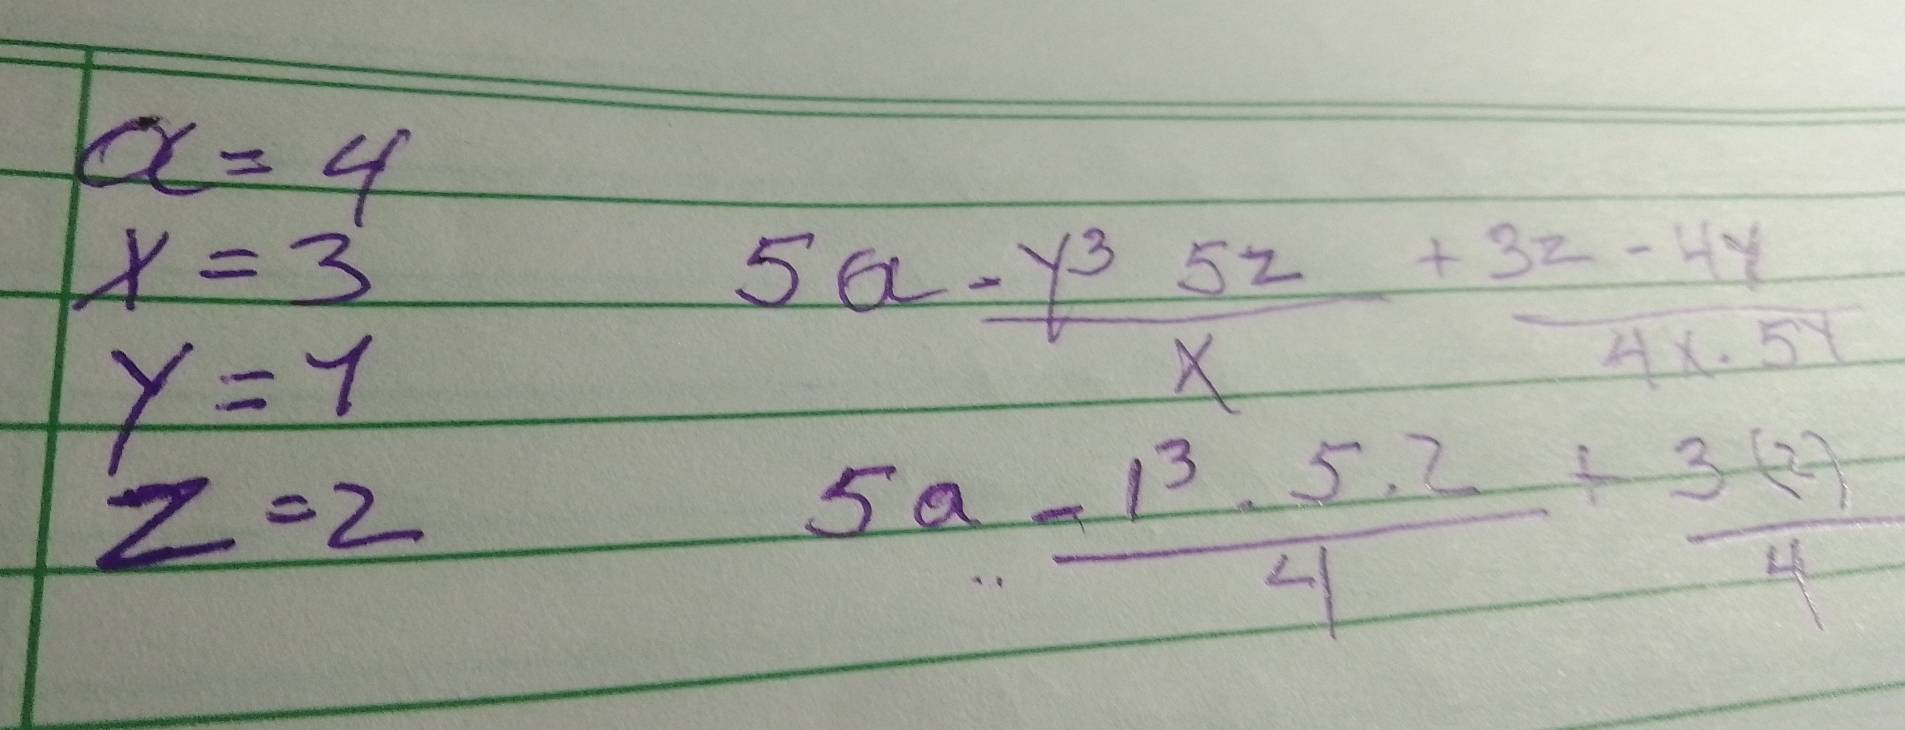 a = 4
x = 3
y = 1
z = 2
5a - y³ 5z / x + 3z - 4y / 4x · 5y
5a - 1³ · 5 · 2 / 4 + 3 (2) / 4